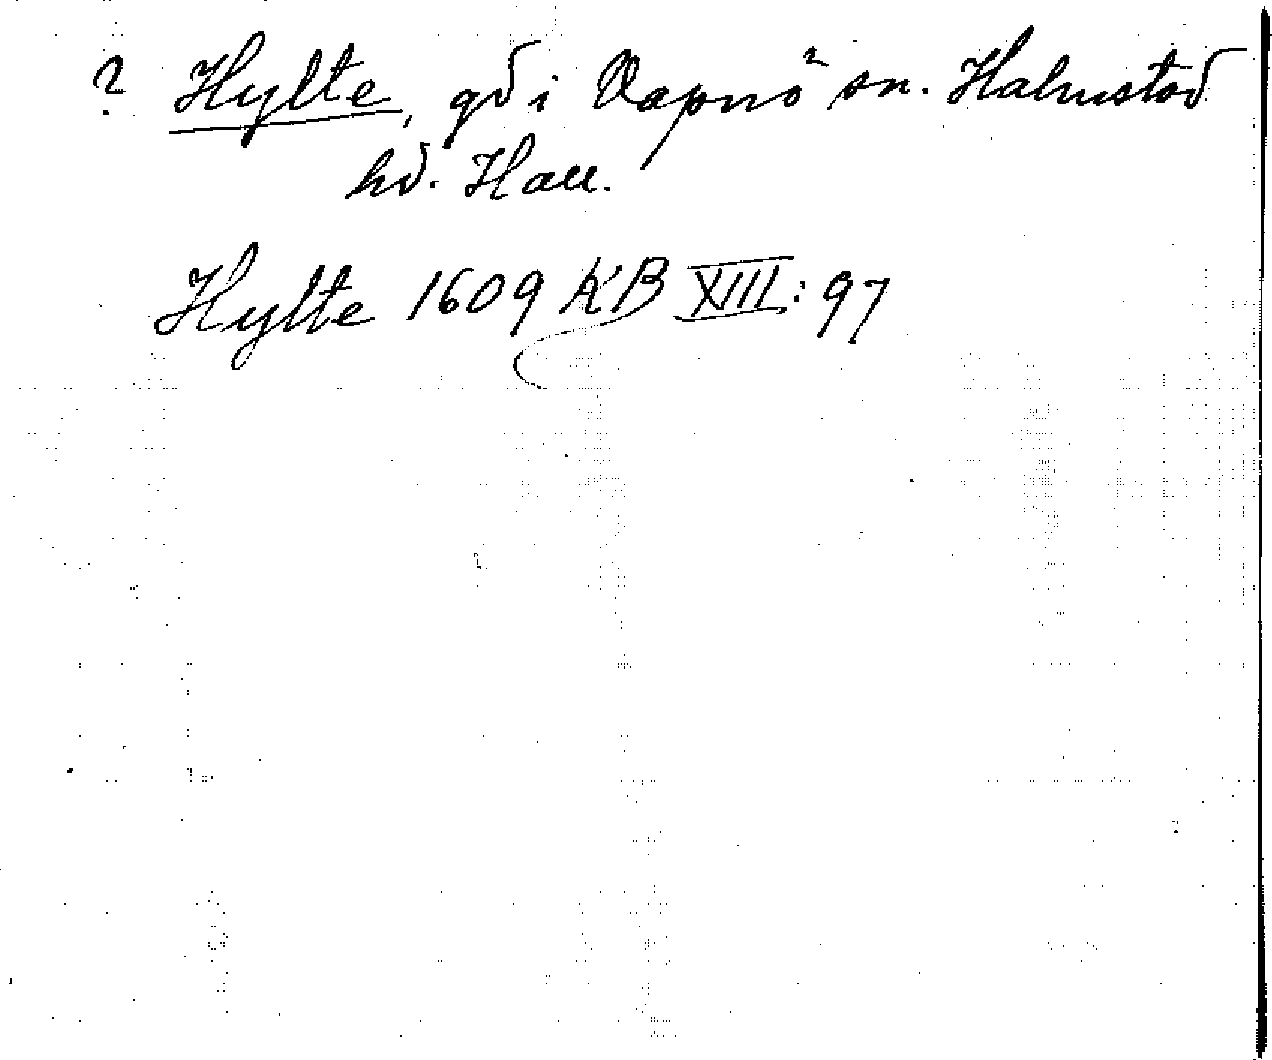 ? Hylte, gd i Vapnö sn. Halmstad
hd. Hall.
Hylte 1609 KB XIII: 97